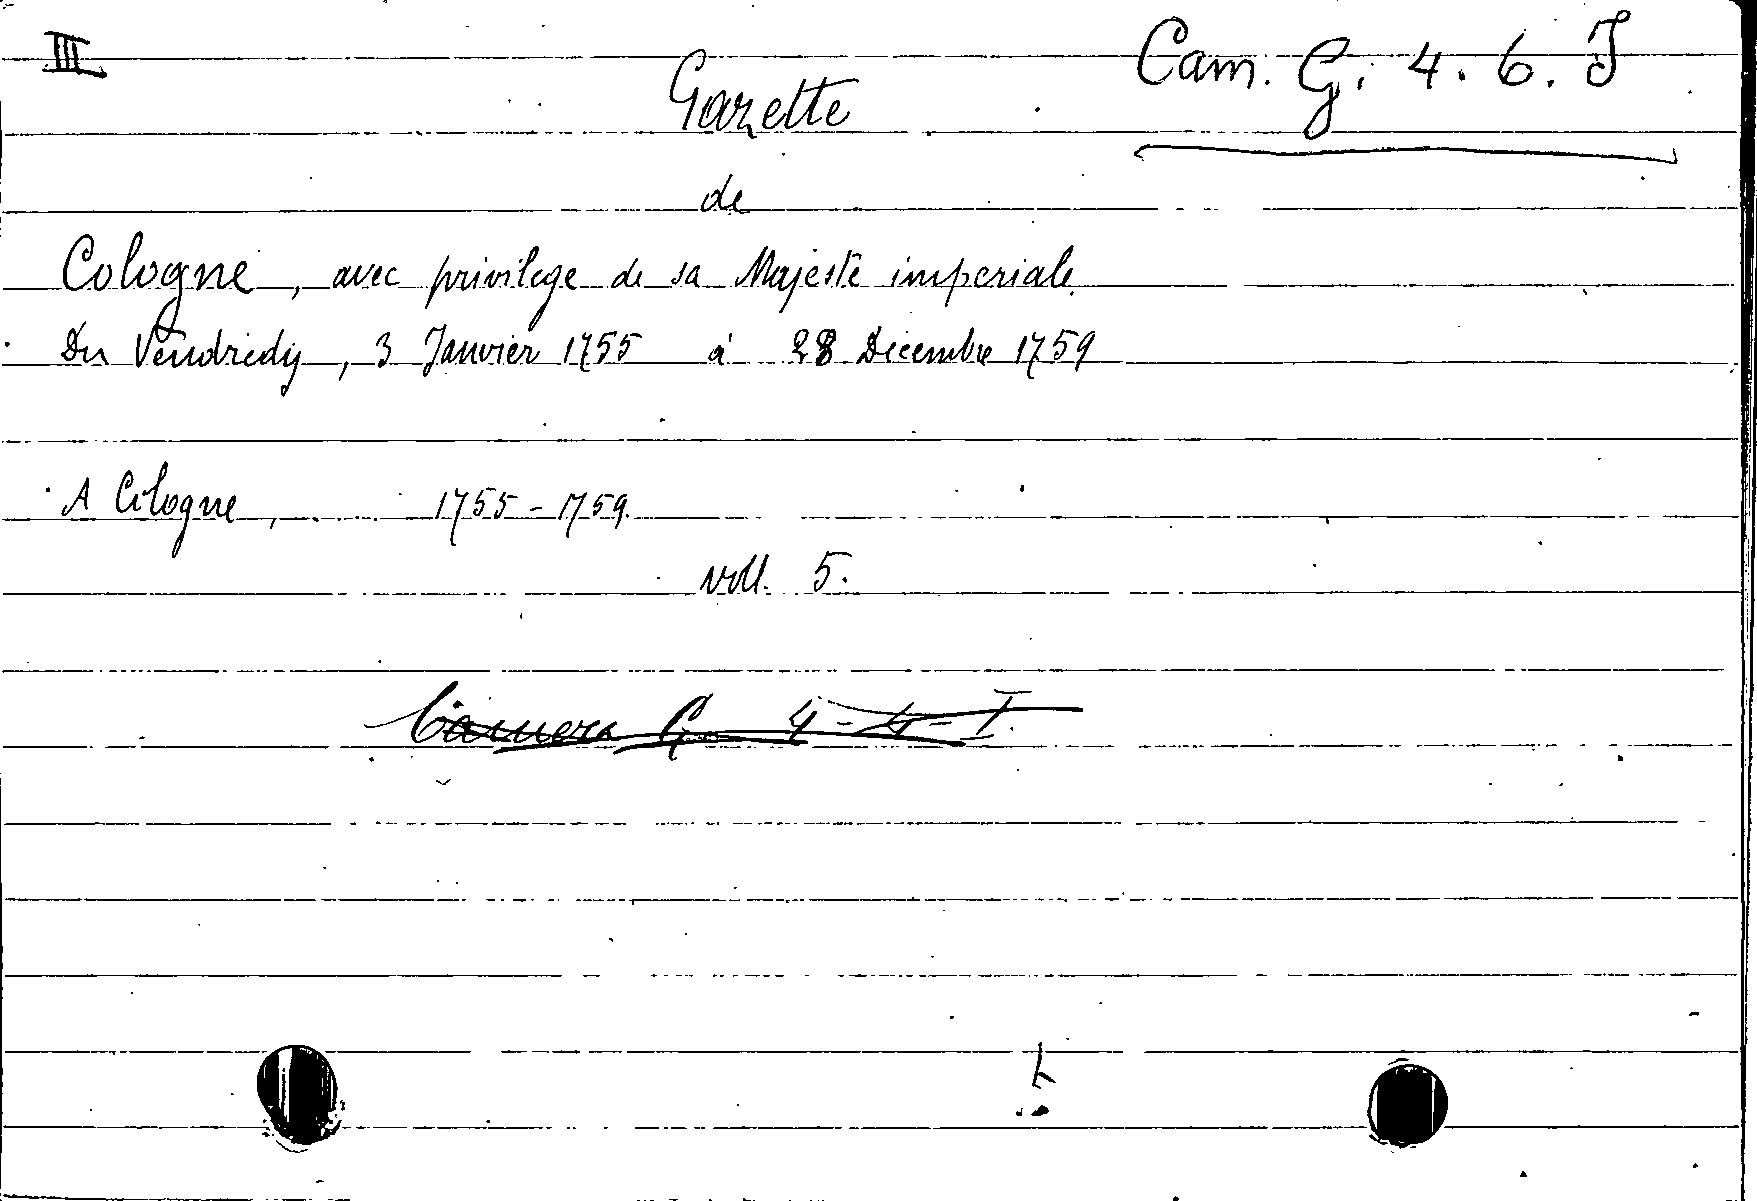 III
Cam. G. 4. 6. I
Gazette
de
Cologne, avec privilege de sa Majesté imperiale
Du Vendredy, 3 Janvier 1755 à 28 Decembre 1759
A Cologne, 1755-1759.
voll. 5.
Camera G. 4-4-I.